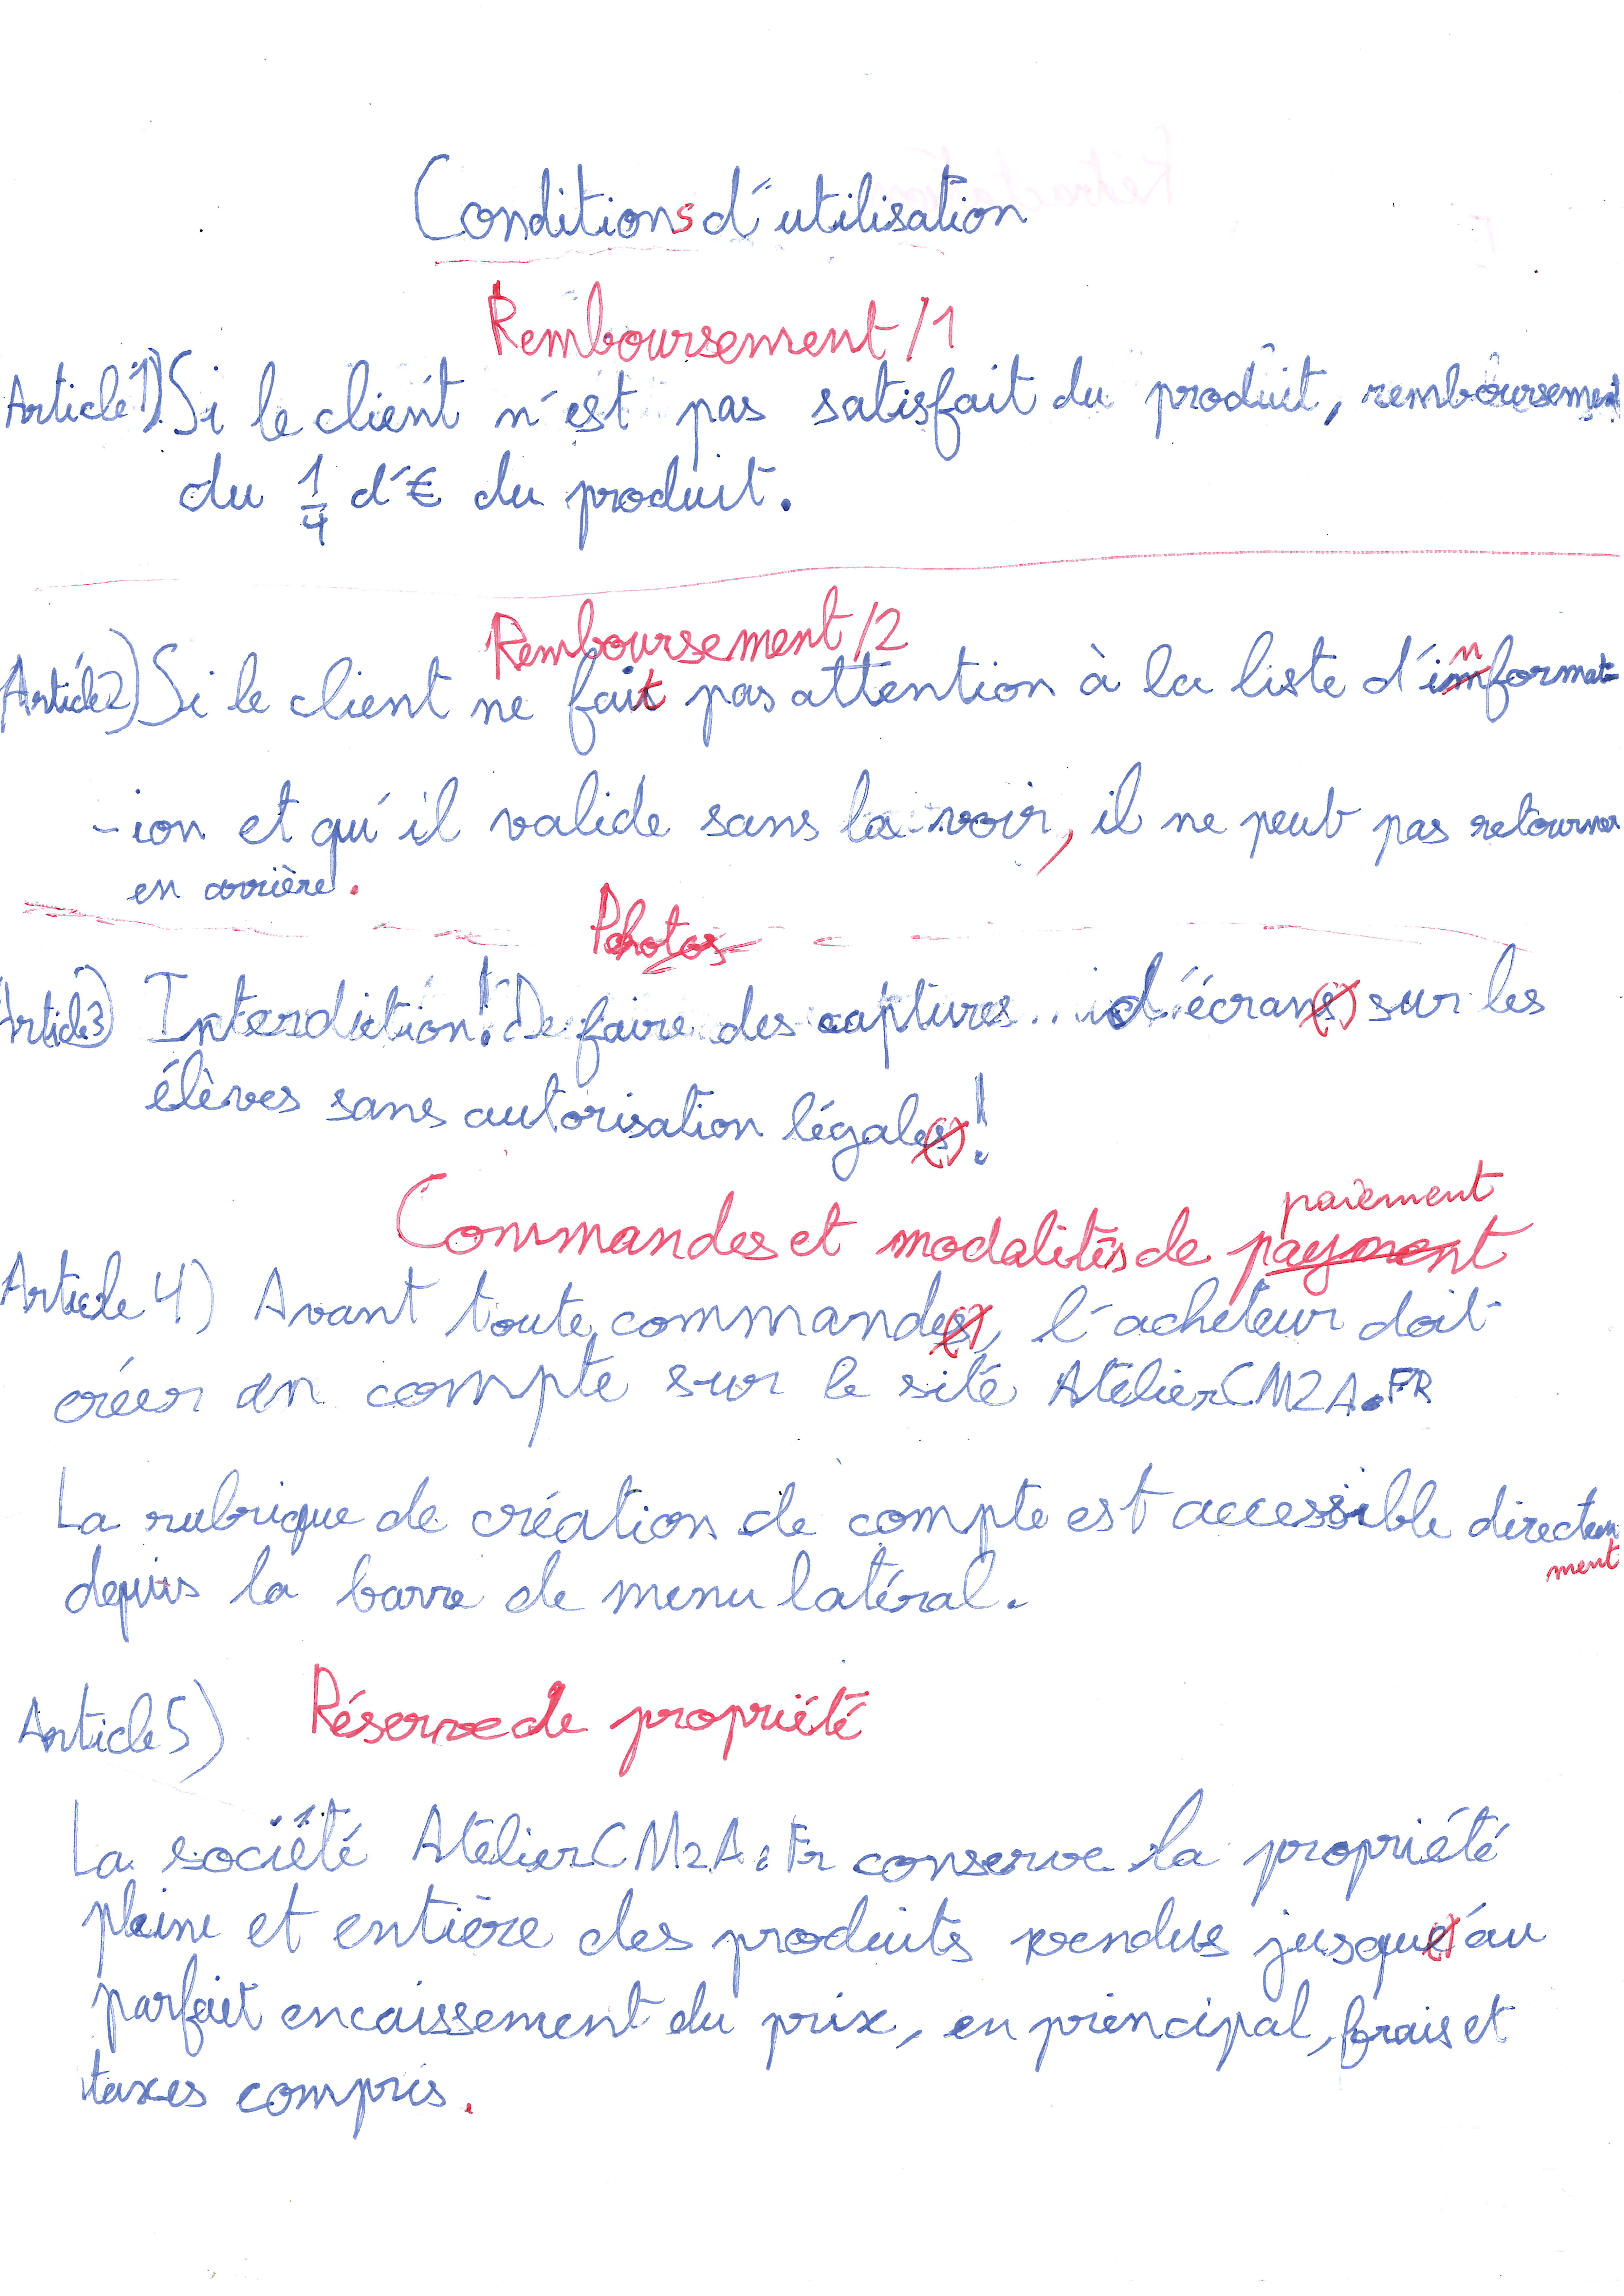 Conditions d'utilisation
Remboursement/1
Article 1) Si le client n'est pas satisfait du produit, remboursement
du 1/4 d'€ du produit.
Remboursement/2
Article 2) Si le client ne fait pas attention à la liste d'informat-
-ion et qu'il valide sans la voir, il ne peut pas retourner
en arrière.
Photos
Article 3) Interdiction! De faire des captures... d'écran(s) sur les
élèves sans autorisation légale(s)!
paiement
Commandes et modalités de payment
Article 4) Avant toute commande(s), l'acheteur doit
créer un compte sur le site AtelierCM2A.FR
La rubrique de création de compte est accessible directem
ment
depuis la barre de menu latéral.
Article 5) Réserve de propriété
La société AtelierCM2A.Fr conserve la propriété
pleine et entière des produits vendus jusqu'au
parfait encaissement du prix, en principal, frais et
taxes compris.